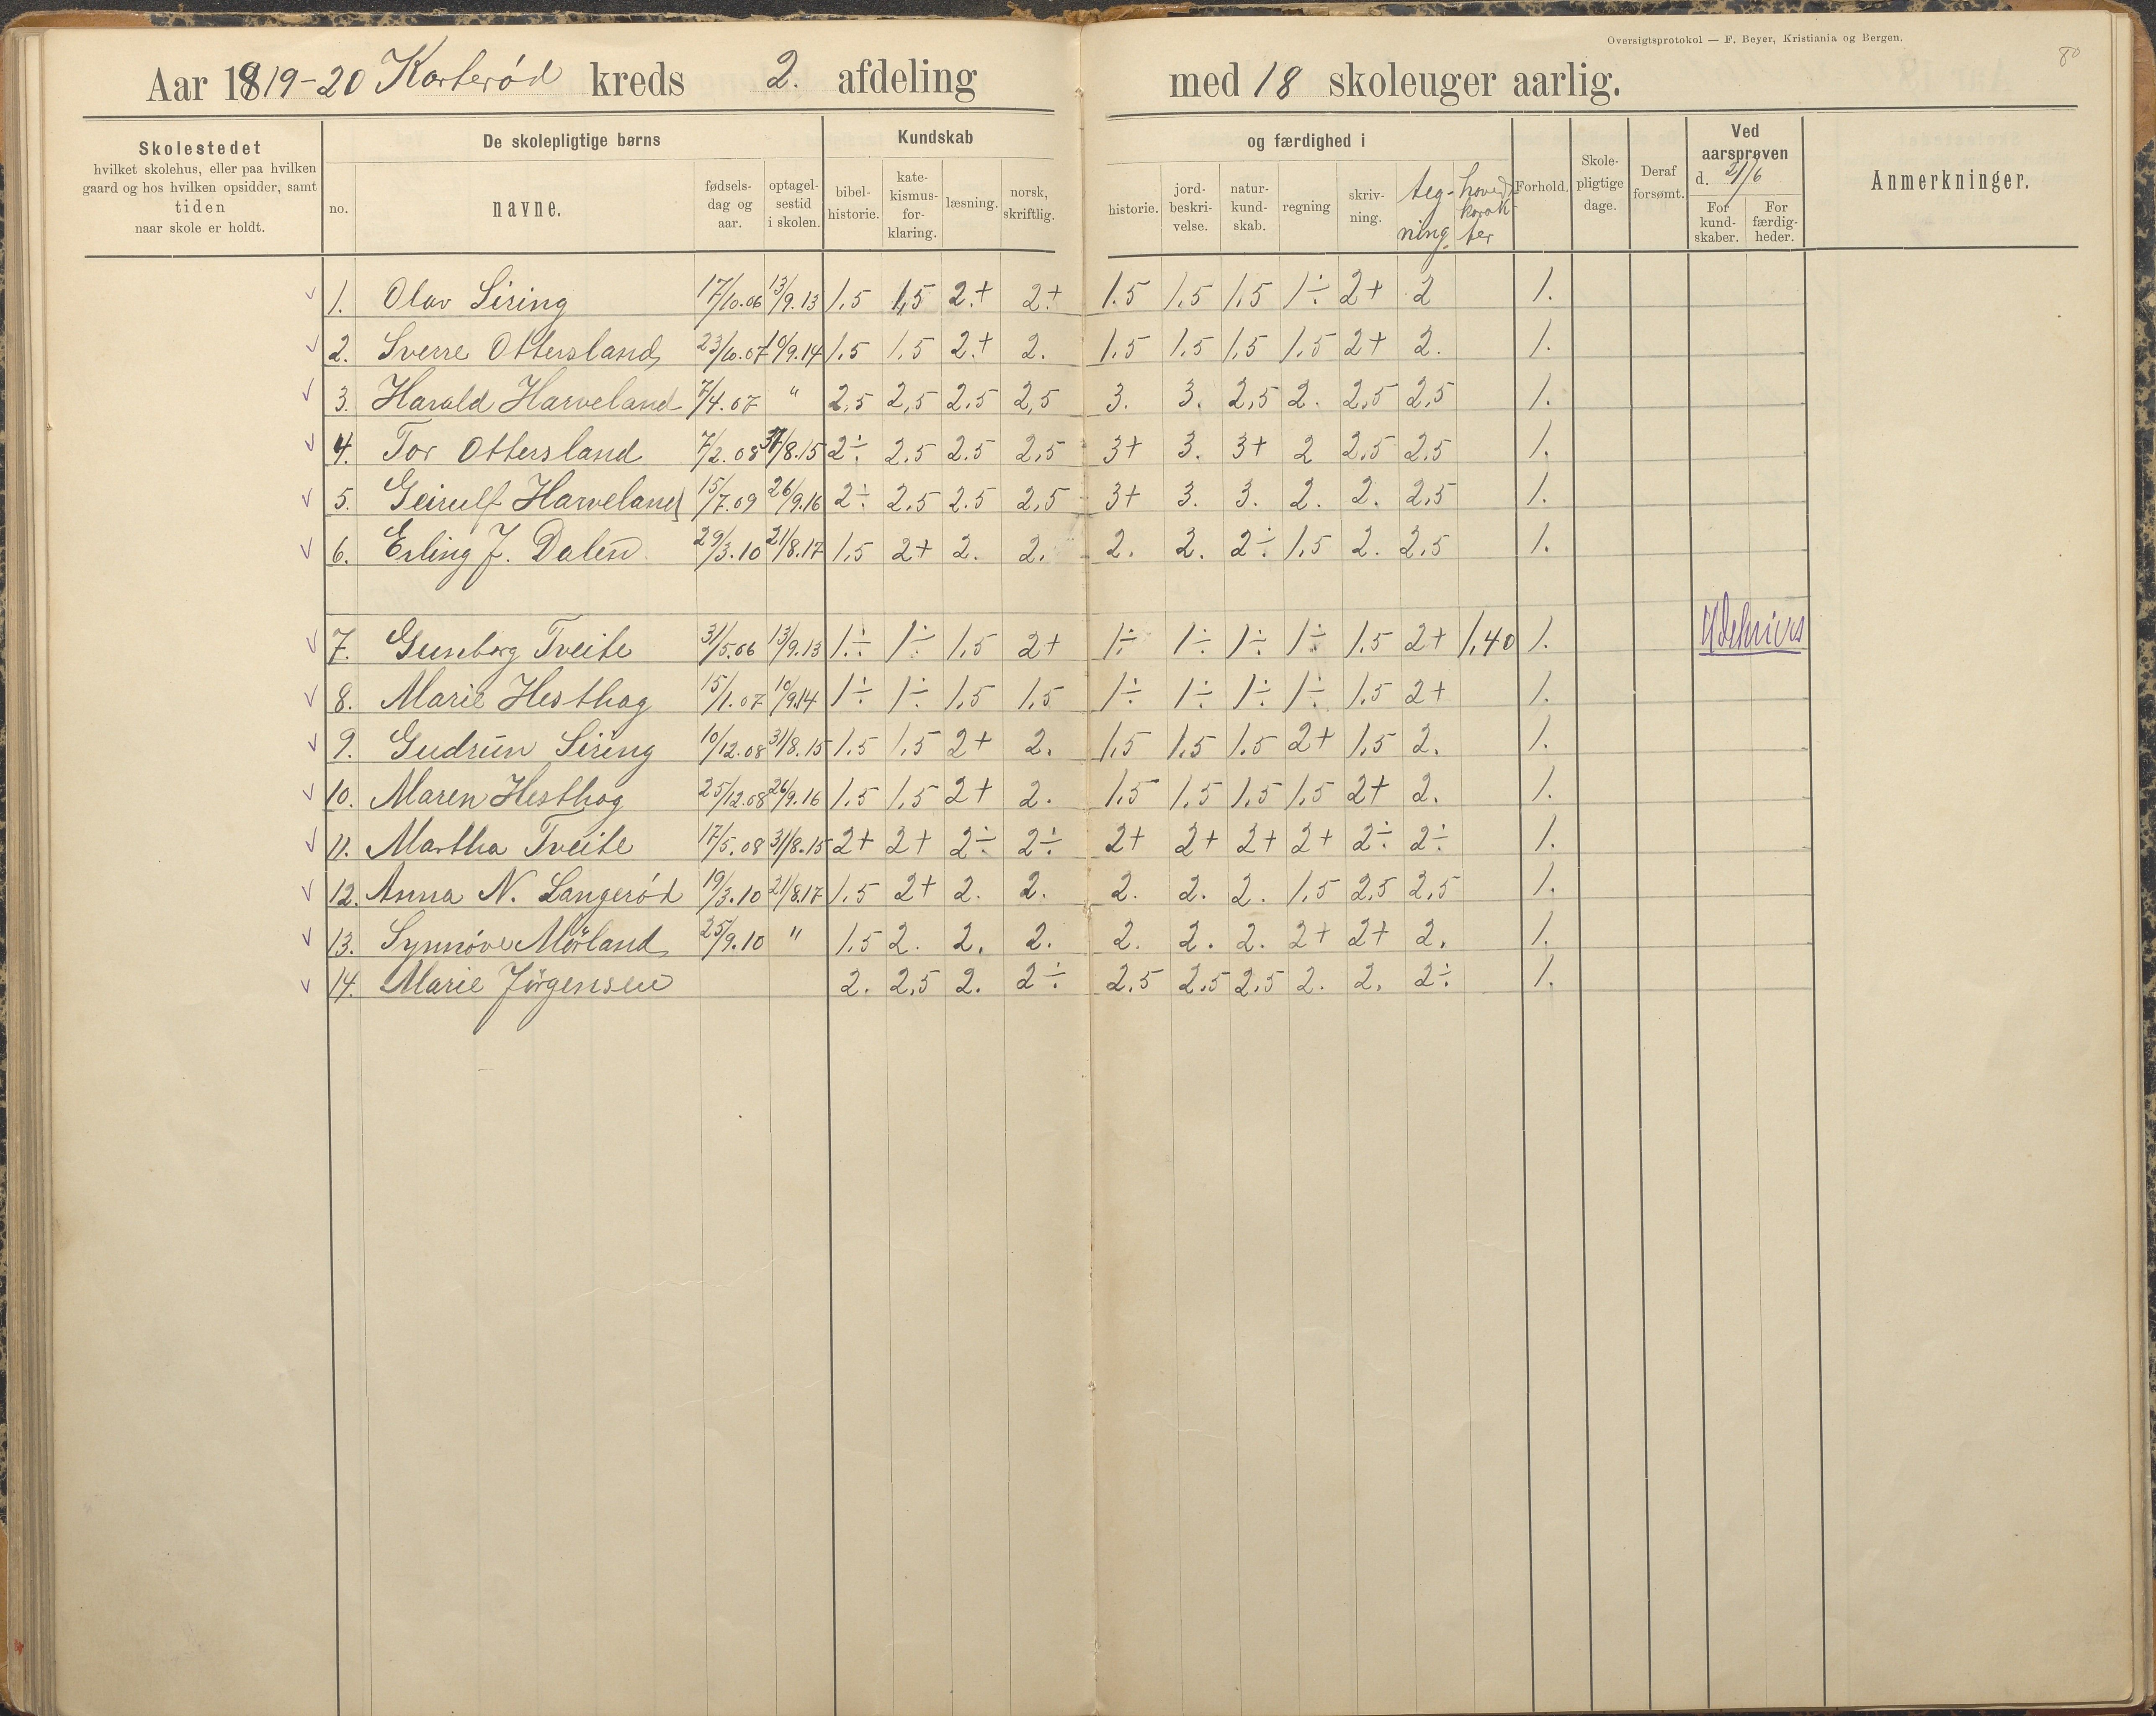 Oversigtsprotokol — F. Beyer, Kristiania og Bergen.
80
Aar 1819-20 Karterød kreds 2. afdeling med 18 skoleuger aarlig.
Skolestedet hvilket skolehus, eller paa hvilken gaard og hos hvilken opsidder, samt tiden naar skole er holdt.
De skolepligtige børns
no. navne. fødsels-dag og aar. optagel-sestid i skolen.
Kundskab og færdighed i
bibel-historie. kate-kismus-for-klaring. læsning. norsk, skriftlig. historie. jord-beskri-velse. natur-kund-skab. regning skriv-ning. teg-ning. hoved karak ter
Forhold. Skole-pligtige dage. Deraf forsømt. Ved aarsprøven d. 21/6 For kund-skaber. For færdig-heder. Anmerkninger.
1. Olav Siring 17/10.06 13/9.13 1,5 1,5 2.+ 2+ 1.5 1,5 1,5 1÷ 2+ 2 1.
2. Sverre Ottersland 23/10.07 10/9.14 1,5 1,5 2.+ 2. 1.5 1.5 1,5 1,5 2+ 2. 1.
3. Harald Harveland 7/4.07 " 2,5 2,5 2.5 2,5 3. 3. 2,5 2. 2,5 2,5 1.
4. Tor Ottersland 7/2.08 31/8.15 2÷ 2.5 2.5 2,5 3+ 3. 3+ 2 2,5 2,5 1.
5. Geirulf Harveland 15/7.09 26/9.16 2÷ 2,5 2.5 2,5 3+ 3. 3. 2. 2. 2,5 1.
6. Erling J. Dalen 29/3.10 21/8.17 1,5 2+ 2. 2. 2. 2. 2÷ 1,5 2. 2,5 1.
7. Gunborg Tveite 31/5.06 13/9.13 1÷ 1÷ 1,5 2+ 1÷ 1÷ 1÷ 1÷ 1,5 2+ 1,40 1.
8. Marie Hesthag 15/1.07 10/9.14 1÷ 1÷ 1,5 1,5 1÷ 1÷ 1÷ 1÷ 1,5 2+ 1.
9. Gudrun Siring 10/12.08 31/8.15 1,5 1,5 2+ 2. 1,5 1,5 1,5 2+ 1,5 2. 1.
10. Maren Hesthag 25/12.08 26/9.16 1,5 1,5 2+ 2. 1,5 1,5 1,5 1,5 2+ 2. 1.
11. Martha Tveite 17/5.08 31/8.15 2+ 2+ 2÷ 2÷ 2+ 2+ 2+ 2+ 2÷ 2÷ 1.
12. Anna N. Langerød 19/3.10 21/8.17 1,5 2+ 2. 2. 2. 2. 2. 1,5 2,5 2,5 1.
13. Synnøve Mörland 25/9.10 " 1,5 2. 2. 2. 2. 2. 2. 2+ 2+ 2. 1.
14. Marie Jörgensen 2. 2,5 2. 2÷ 2,5 2.5 2,5 2. 2. 2÷ 1.